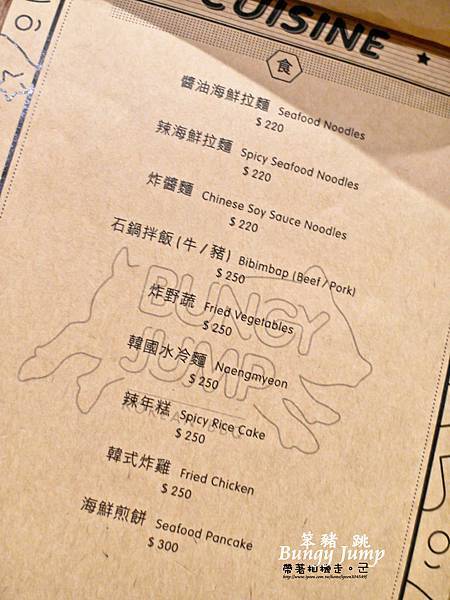 CUISINE
食
醬油海鮮拉麵 Seafood Noodles
$ 220
辣海鮮拉麵 Spicy Seafood Noodles
$ 220
炸醬麵 Chinese Soy Sauce Noodles
$ 220
石鍋拌飯 (牛 / 豬) Bibimbap (Beef / Pork)
$ 250
炸野蔬 Fried Vegetables
$ 250
韓國水冷麵 Naengmyeon
$ 250
辣年糕 Spicy Rice Cake
$ 250
韓式炸雞 Fried Chicken
$ 250
海鮮煎餅 Seafood Pancake
$ 300
BUNGY
JUMP
KOREAN BBQ
笨豬 跳
Bungy Jump
帶著相機走。